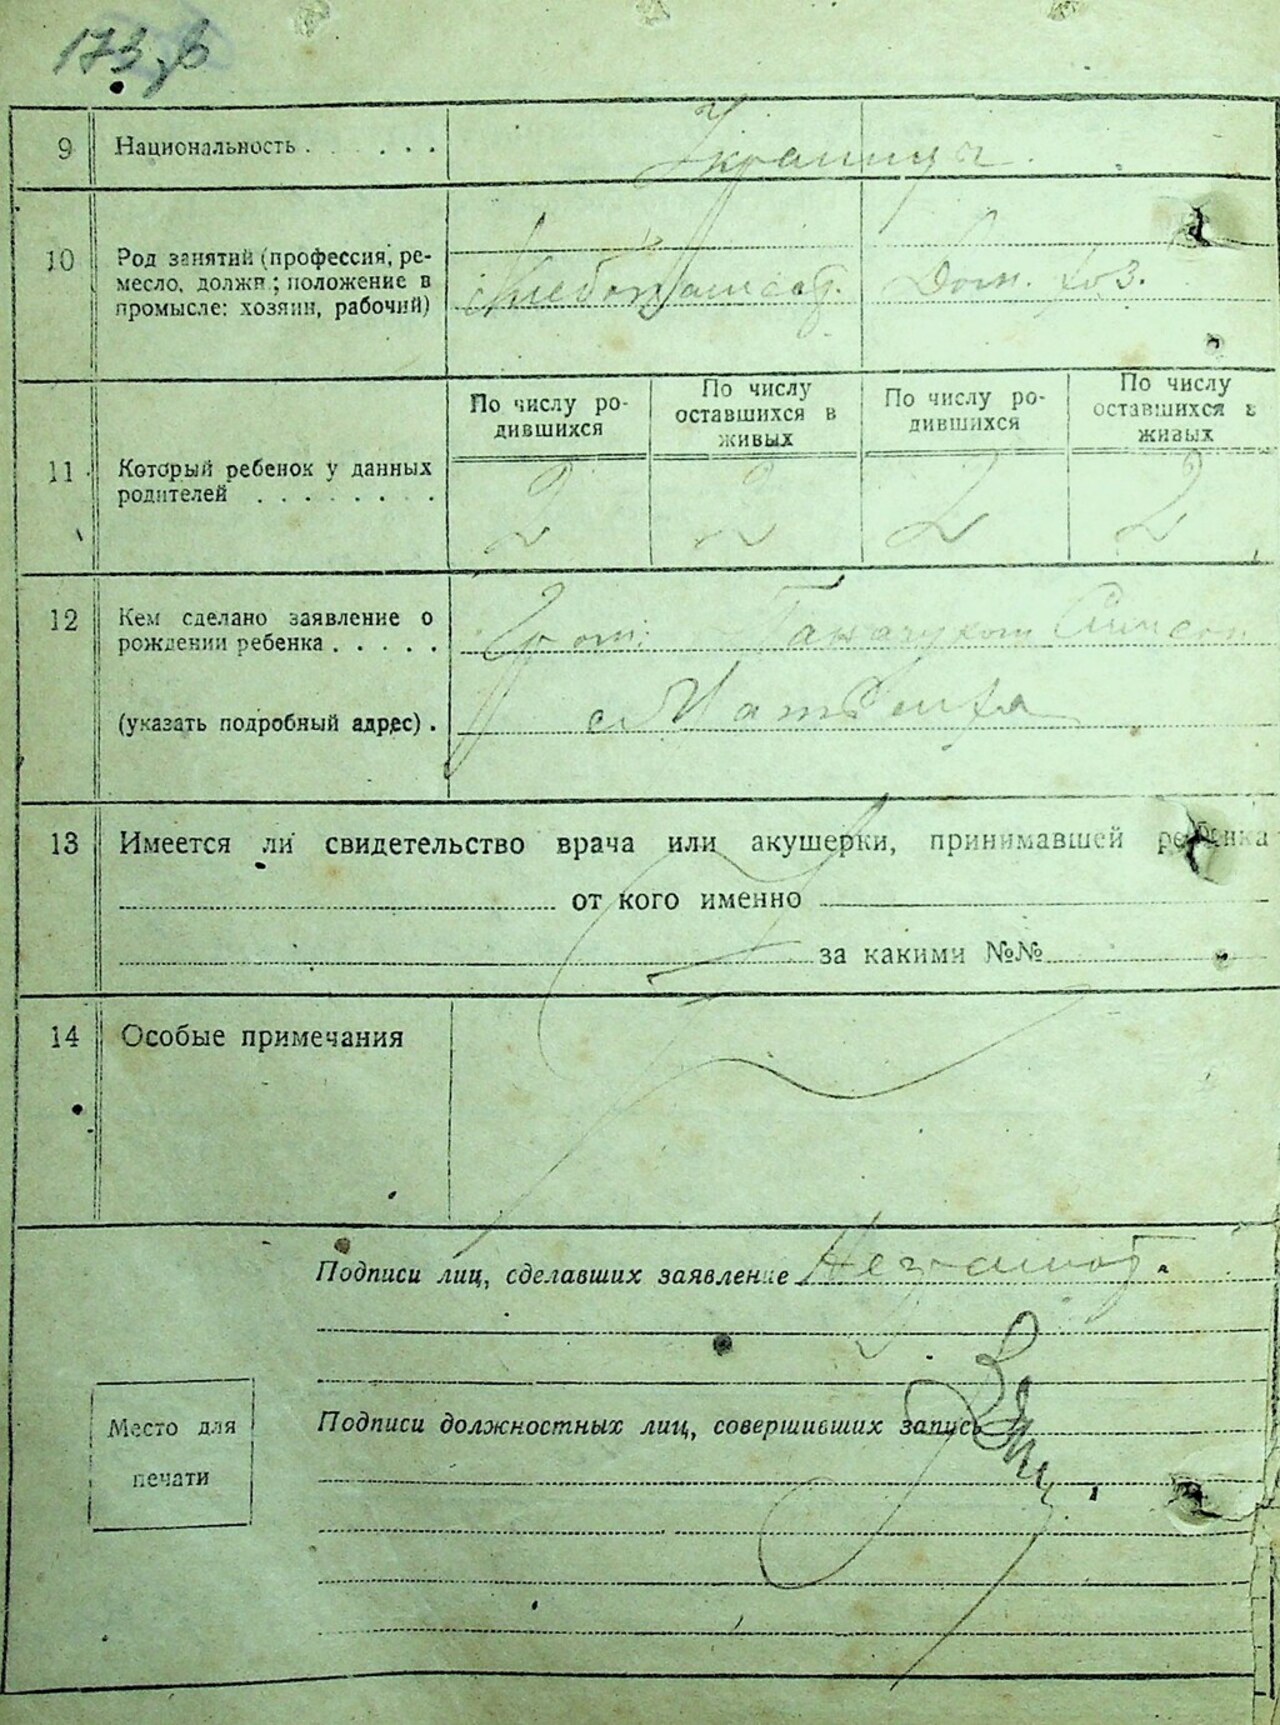 173
9 Национальность . . . . . Украинцы
10 Род занятий (профессия, ре-
месло, должн.; положение в
промысле: хозяин, рабочий)
Хлебопашест. Дом. хоз.
По числу ро-
дившихся
По числу
оставшихся в
живых
По числу ро-
дившихся
По числу
оставшихся в
живых
11 Который ребенок у данных
родителей . . . . . . . .
2 2 2 2
12 Кем сделано заявление о
рождении ребенка . . . . .
(указать подробный адрес) .
13 Имеется ли свидетельство врача или акушерки, принимавшей ребенка
от кого именно
за какими №№
14 Особые примечания
Подписи лиц, сделавших заявление Неграмот.
Место для
печати
Подписи должностных лиц, совершивших запись